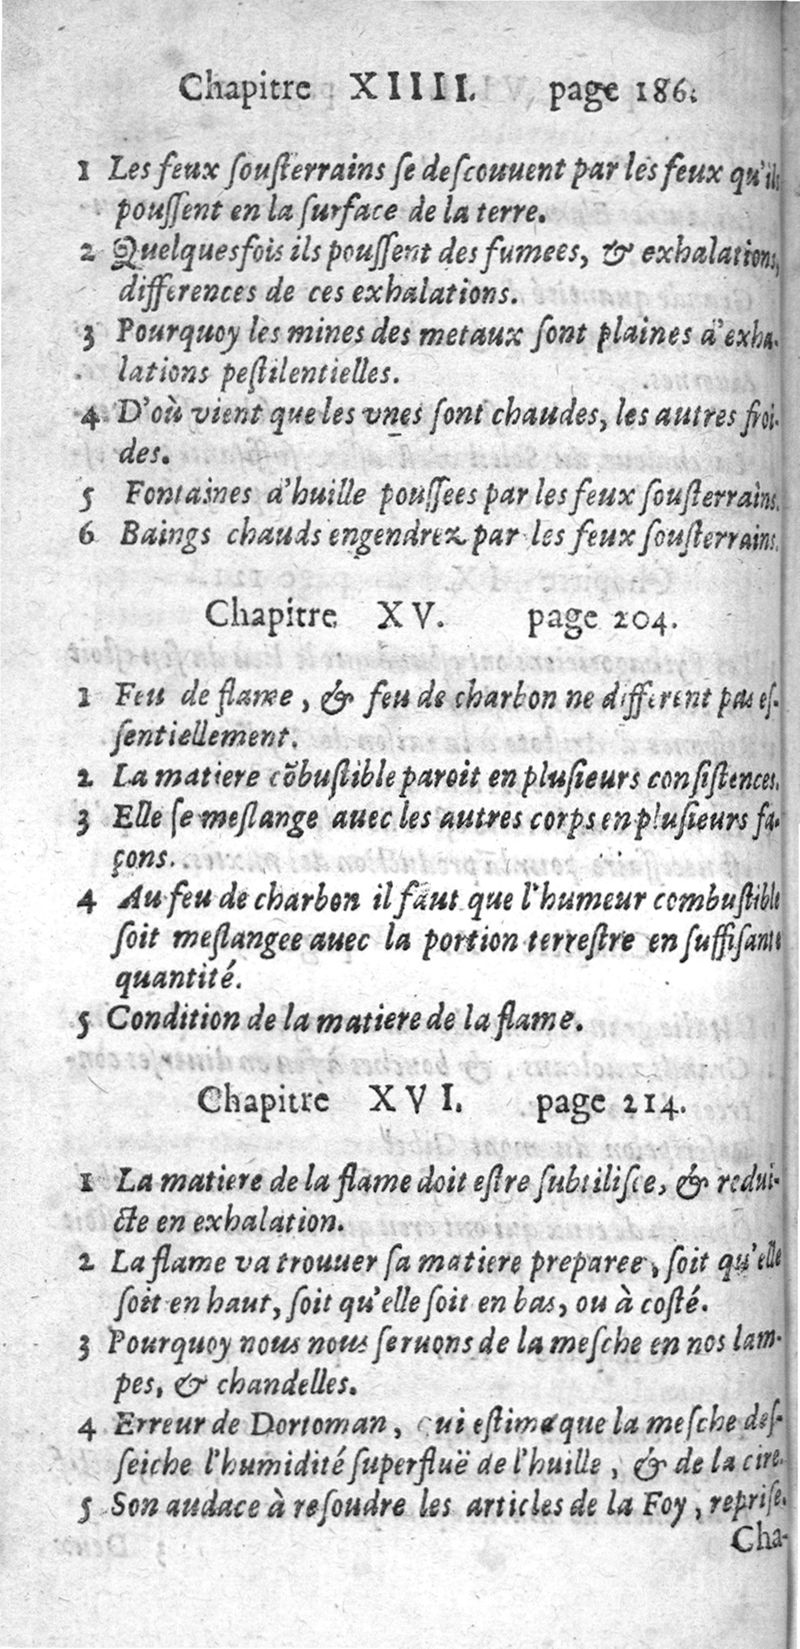 Chapitre XIIII. page 186.
1 Les feux ſouſterrains ſe deſcouuent par les feux qu'ils
pouſſent en la ſurface de la terre.
2 Quelquesfois ils pouſſent des fumees, & exhalations,
differences de ces exhalations.
3 Pourquoy les mines des metaux ſont plaines d'exha-
lations peſtilentielles.
4 D'où vient que les vnes ſont chaudes, les autres froi-
des.
5 Fontaines d'huille pouſſees par les feux ſouſterrains.
6 Baings chauds engendrez par les feux ſouſterrains.
Chapitre XV. page 204.
1 Feu de flame, & feu de charbon ne different pas eſ-
ſentiellement.
2 La matiere cõbuſtible paroit en pluſieurs conſiſtences.
3 Elle ſe meſlange auec les autres corps en pluſieurs fa-
çons.
4 Au feu de charbon il faut que l'humeur combuſtible
ſoit meſlangee auec la portion terreſtre en ſuffiſante
quantité.
5 Condition de la matiere de la flame.
Chapitre XVI. page 214.
1 La matiere de la flame doit eſtre ſubtiliſee, & redui-
cte en exhalation.
2 La flame va trouuer ſa matiere preparee, ſoit qu'elle
ſoit en haut, ſoit qu'elle ſoit en bas, ou à coſté.
3 Pourquoy nous nous ſeruons de la meſche en nos lam-
pes, & chandelles.
4 Erreur de Dortoman, qui eſtime que la meſche deſ-
ſeiche l'humidité ſuperfluë de l'huille, & de la cire.
5 Son audace à reſoudre les articles de la Foy, repriſe.
Cha-